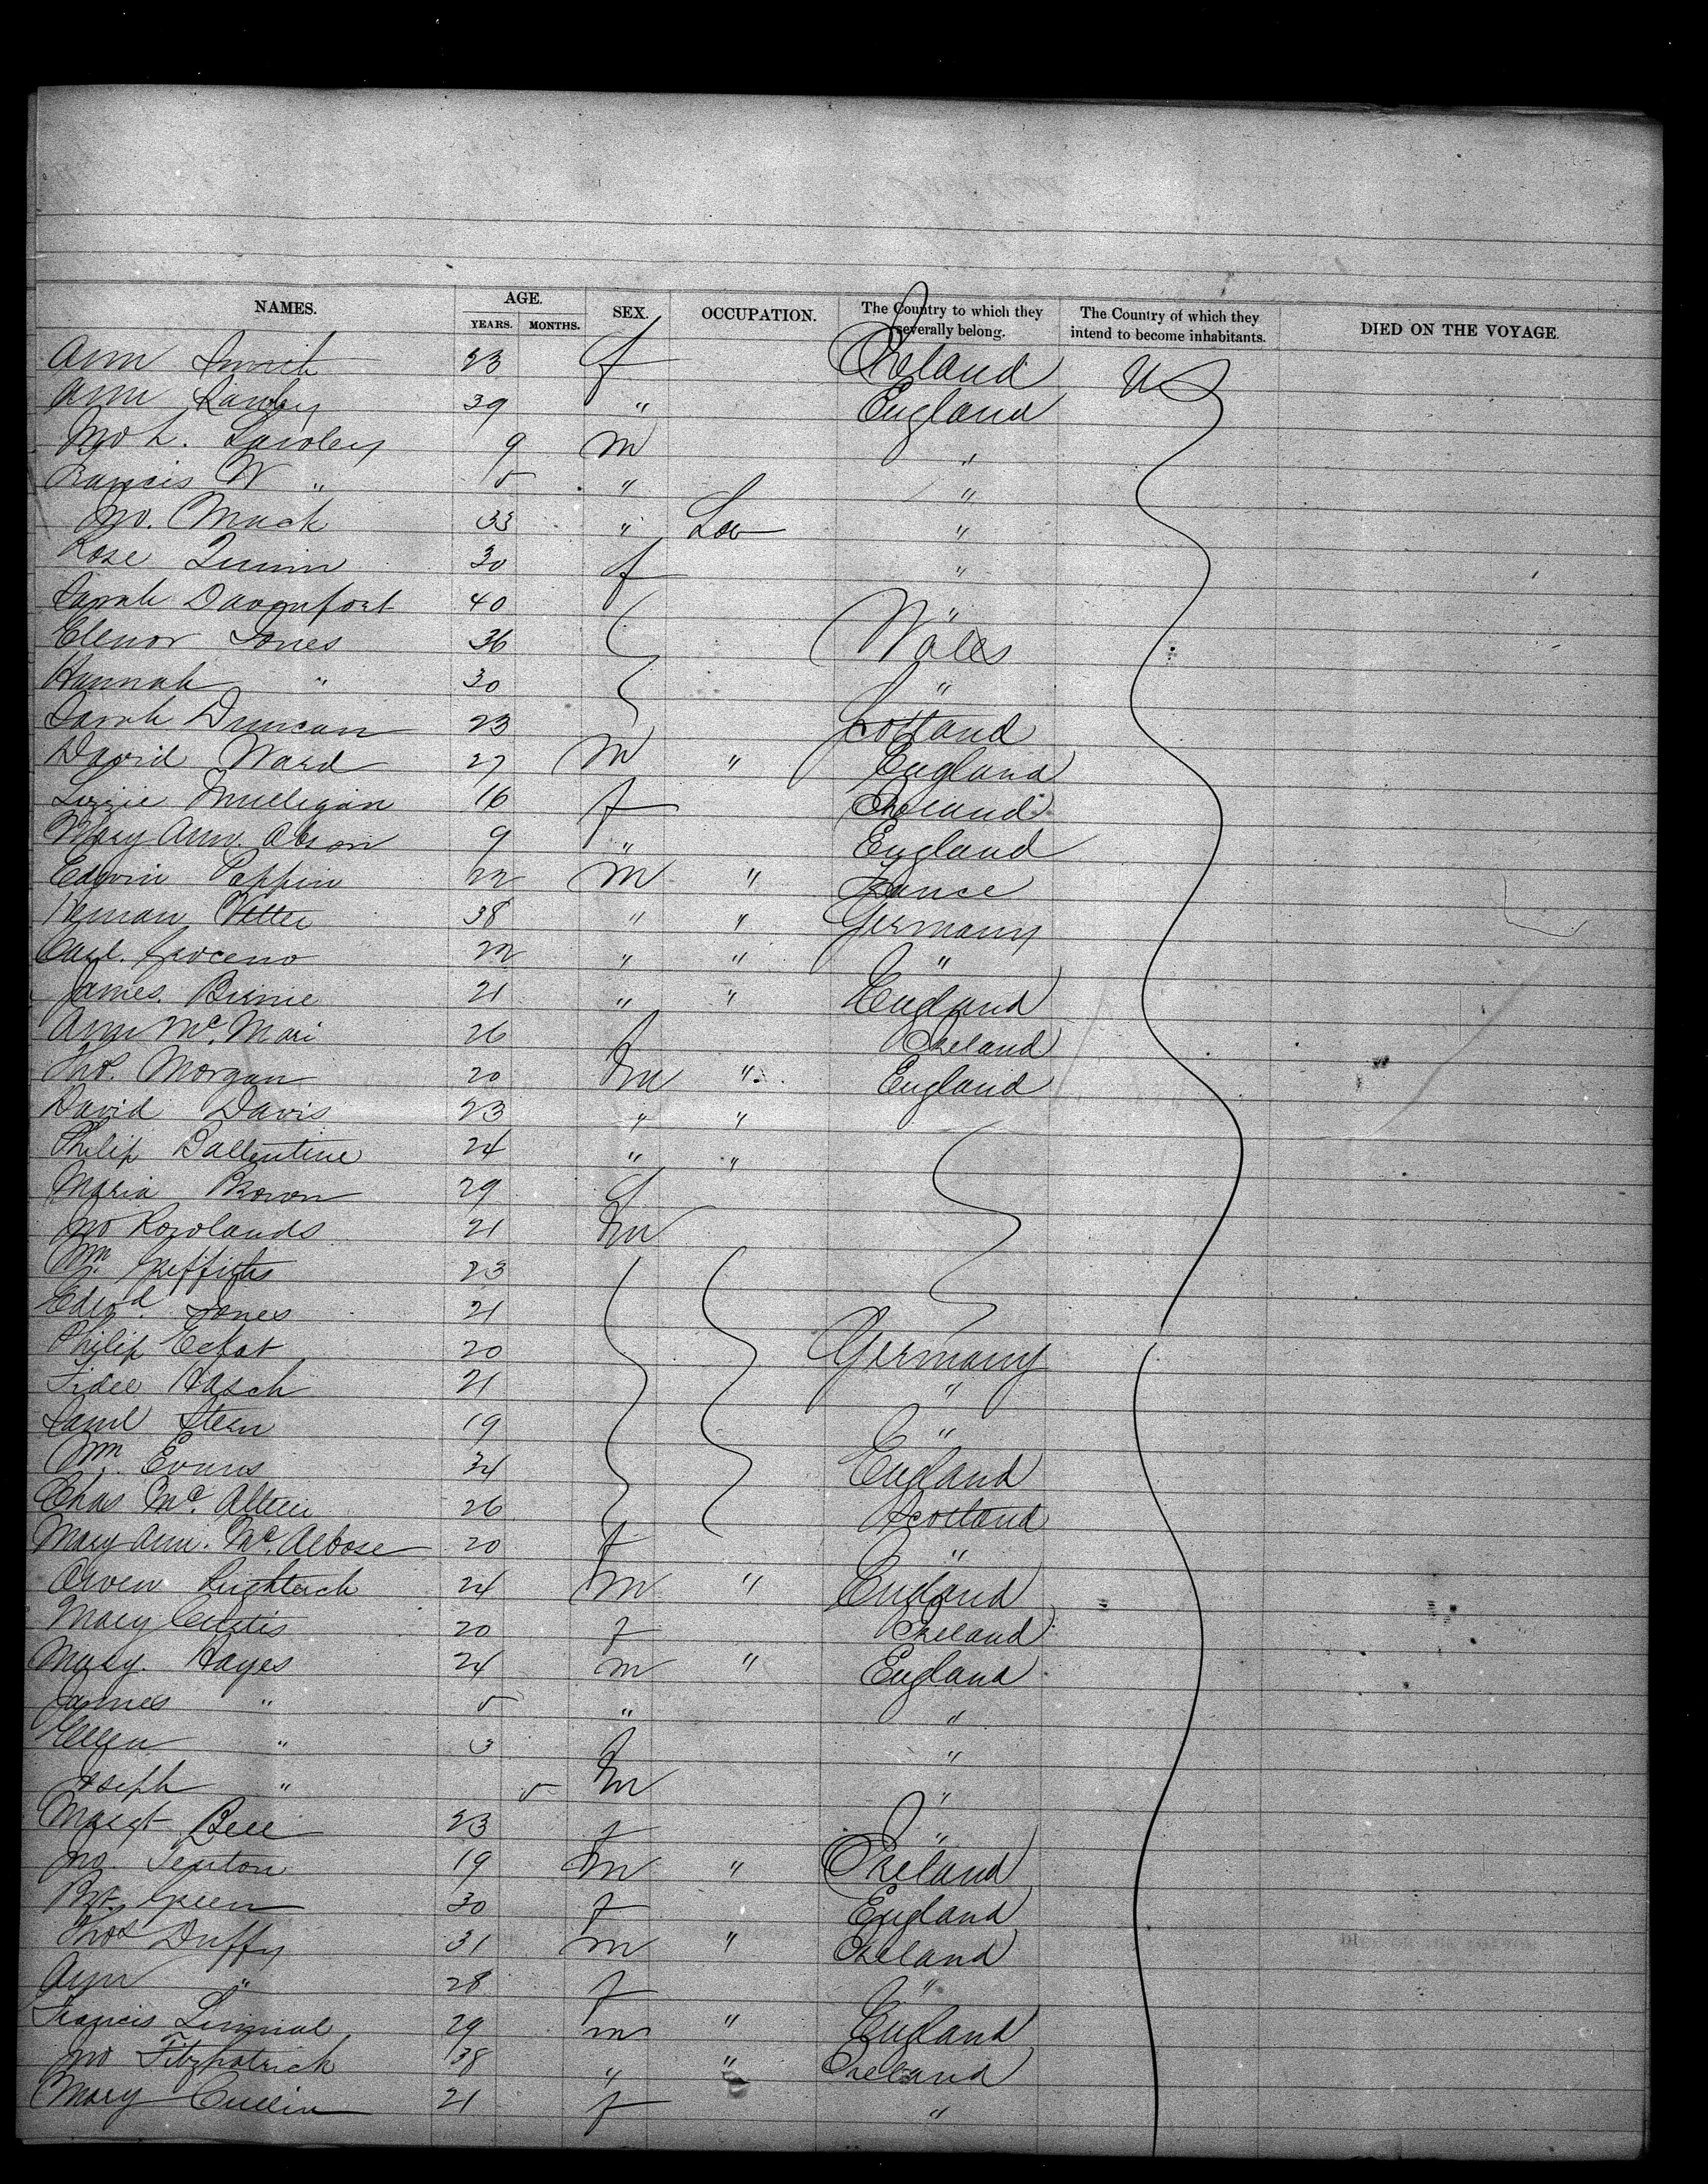 NAMES. AGE. YEARS. MONTHS. SEX. OCCUPATION. The Country to which they severally belong. The Country of which they intend to become inhabitants. DIED ON THE VOYAGE.
Ann Smith 23 f Ireland US
Ann 39 " England
Jno L. 9 m "
Francis W " 5 " "
Jno. Mack 33 " Lab "
Rose Quinn 30 f "
Sarah Davenport 40 "
Elenor Jones 36 Wales
Hannah " 30 "
Sarah Duncan 23 Scotland
David Ward 27 m " England
Lizzie Mulligan 16 f Ireland
Mary Ann 9 " England
Edwin Pappin 22 m " France
Herman Vetter 38 " " Germany
Carl 22 " " "
James Birnie 21 " " England
Ann Mc. Mari 26 f Ireland
Thos. Morgan 20 m " England
David Davis 23 " "
Philip Ballentine 24 " "
Maria Brown 29 f
Jno Rowlands 21 m
Wm Griffiths 23
Edwd Jones 21
Philip 20 Germany
Hasch 21 "
Saml Stern 19 "
Wm. Evans 34 England
Chas Mc. 26 Scotland
Mary Ann. Mc. 20 f "
Owen 24 m " England
Mary 20 f Ireland
Mary Hayes 24 m " England
James " 5 " "
Ellen " 3 f "
Joseph " 5 m "
Margt Bell 23 f "
Jno. Fenton 19 m " Ireland
Green 30 f England
Thos Duffy 31 m " Ireland
Ann " 28 f "
Francis 29 m " England
Jno Fitzpatrick 38 " " Ireland
Mary Cullin 21 f "